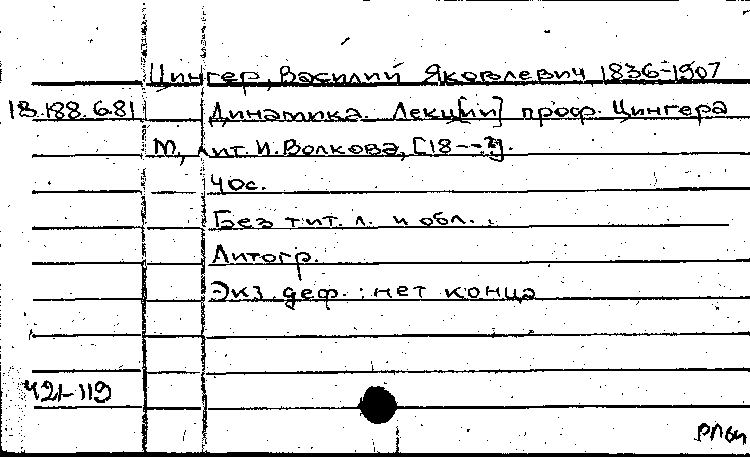 Цингер, Василий Яковлевич 1836-1907
18.188.6.81 Динамика. Лекц[ии] проф. Цингера
М, лит. И. Волкова, [18--?].
40с.
Без тит. л. и обл.
Литогр.
Экз. деф.: нет конца
421-119